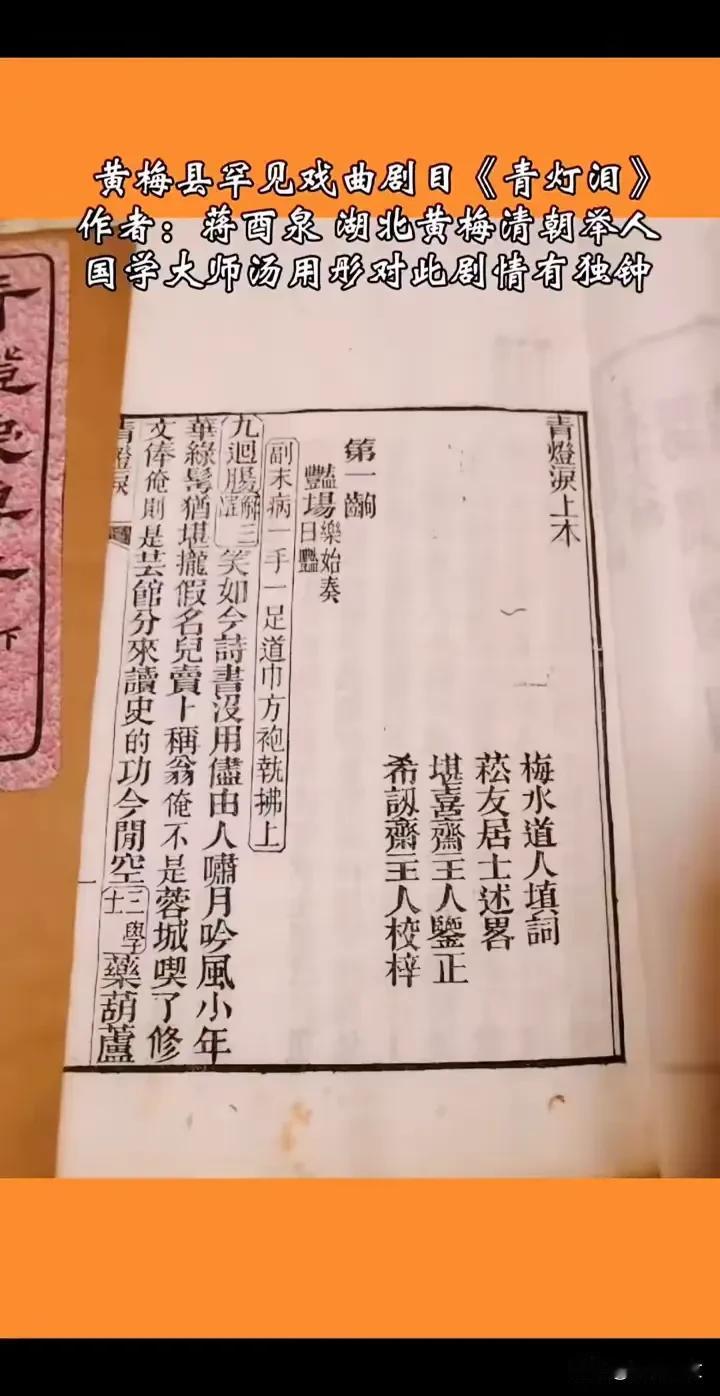 黄梅县罕见戏曲剧目《青灯泪》
作者：蒋酉泉 湖北黄梅清朝举人
国学大师汤用彤对此剧情有独钟
青燈淚上本
梅水道人填詞
菘友居士述畧
堪喜齋主人鑒正
希訒齋主人校梓
第一齣
豔場樂始奏曰豔
副末病一手一足道巾方袍執拂上
九迴腸解三
笑如今詩書沒用儘由人嘯月吟風小年
華綠鬢猶堪攏假名兒賣卜稱翁俺不是蓉城喫了修
文俸俺則是芸館分來讀史的功今閒空三學士藥葫蘆
青燈淚
下